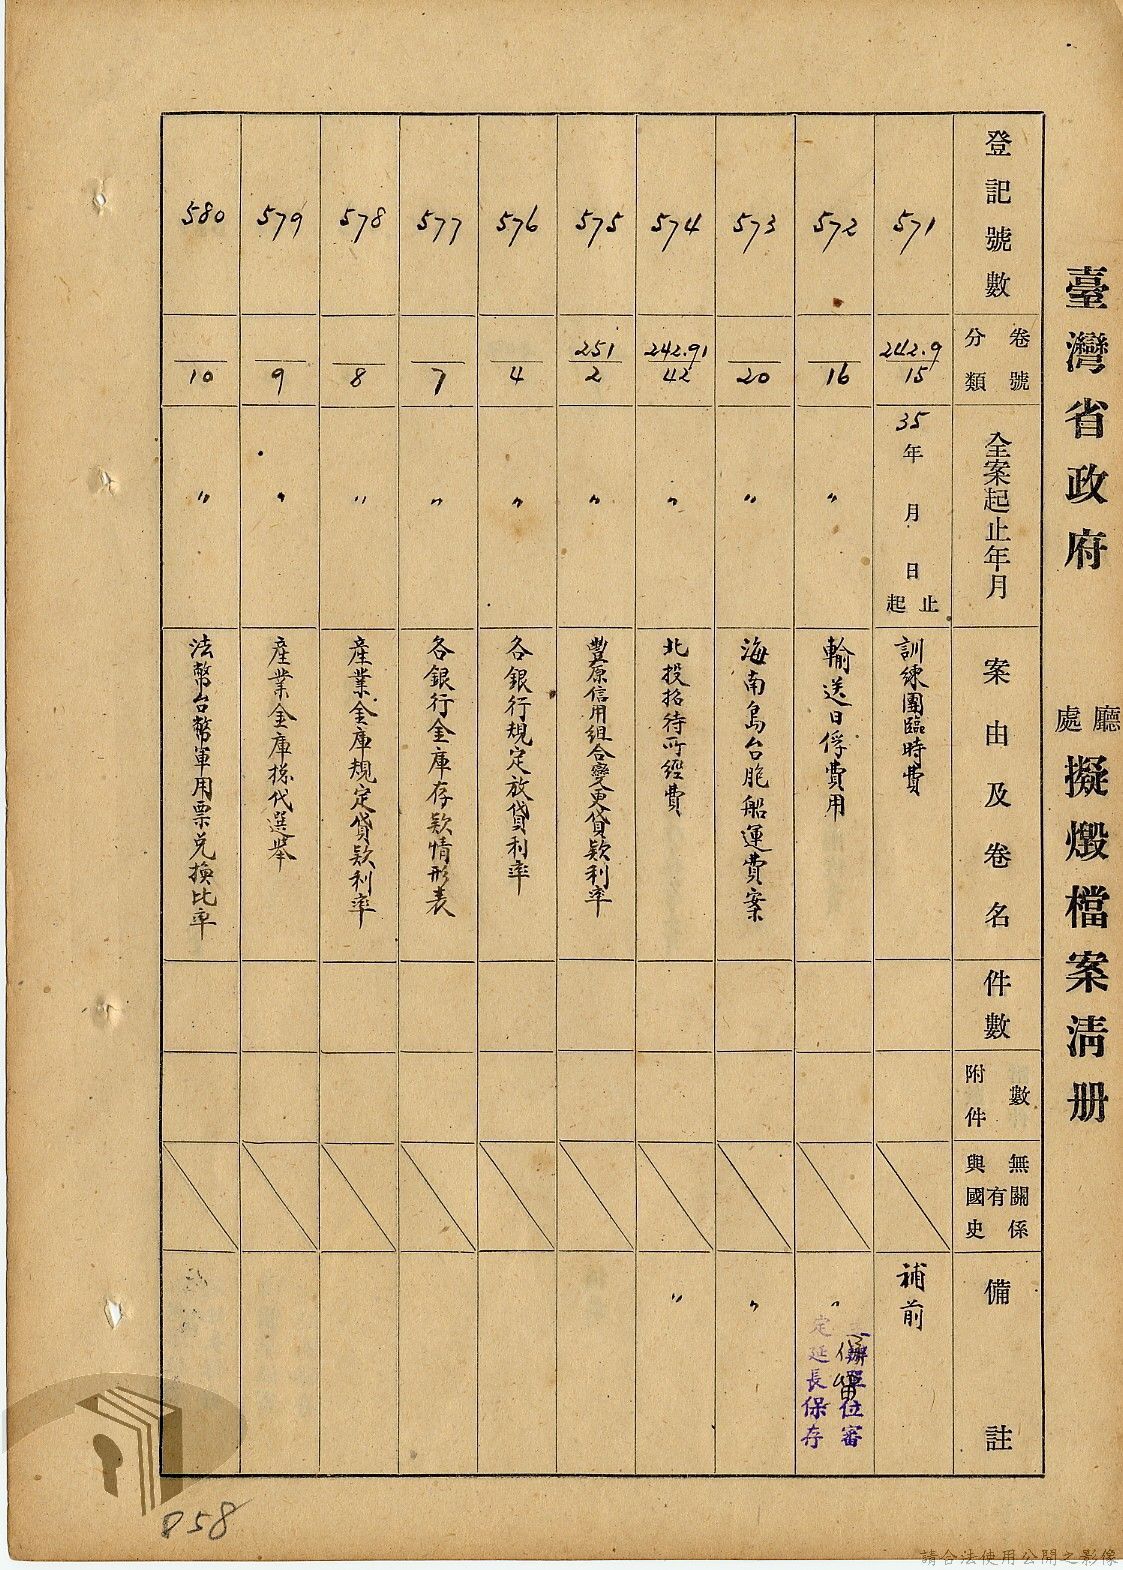 臺灣省政府 廳處 擬燬檔案清册
登記號數
分類 卷號
全案起止年月
案由及卷名
件數
附件數
與國史有無關係
備註
571
242.9
15
35年 月 日 起止
訓練團臨時費
補前
572
16
〃
輸送日俘費用
〃
保留
主辦單位審
定延長保存
573
20
〃
海南島台胞船運費案
〃
574
242.91
42
〃
北投招待所經費
〃
575
251
2
〃
豐原信用組合變更貸款利率
576
4
〃
各銀行規定放貸利率
577
7
〃
各銀行金庫存款情形表
578
8
〃
產業金庫規定貸款利率
579
9
〃
產業金庫總代選举
580
10
〃
法幣台幣軍用票兑換比率
858
請合法使用公開之影像